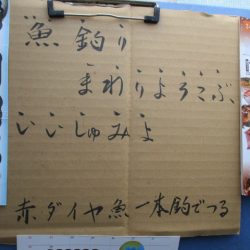 魚釣り
まわりようこぶ、
いいしゅみよ
赤ダイヤ魚一本釣でつる